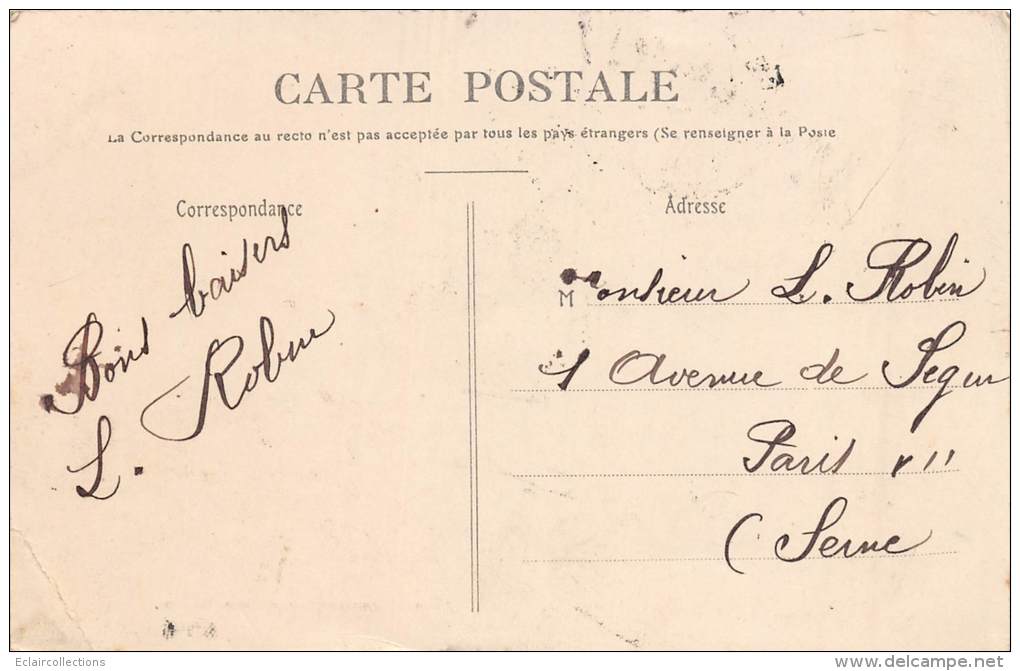 CARTE POSTALE
La Correspondance au recto n'est pas acceptée par tous les pays étrangers (Se renseigner à la Poste
Correspondance
Bons baisers
L. Robin
Adresse
Monsieur L. Robin
1 Avenue de Segur
Paris VII
(Seine
Eclaircollections
www.delcampe.net